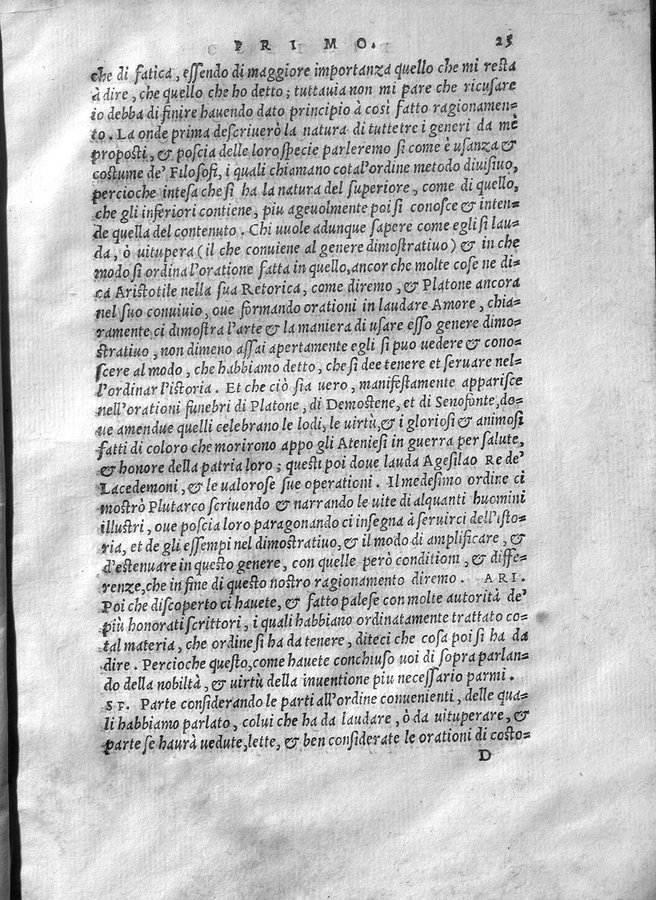 PRIMO. 25
che di fatica, essendo di maggiore importanza quello che mi resta
à dire, che quello che ho detto; tuttauia non mi pare che ricusare
io debba di finire hauendo dato principio à così fatto ragionamen=
to. La onde prima descriuerò la natura di tutte tre i generi da me
proposti, & poscia delle loro specie parleremo si come è usanza &
costume de' Filosofi, i quali chiamano cotal'ordine metodo diuisiuo,
percioche intesa che si ha la natura del superiore, come di quello,
che gli inferiori contiene, piu ageuolmente poi si conosce & inten=
de quella del contenuto. Chi uuole adunque sapere come egli si lau=
da, ò uitupera (il che conuiene al genere dimostratiuo) & in che
modo si ordina l'oratione fatta in quello, ancor che molte cose ne di=
ca Aristotile nella sua Retorica, come diremo, & Platone ancora
nel suo conuiuio, oue formando orationi in laudare Amore, chia=
ramente ci dimostra l'arte & la maniera di usare esso genere dimo=
stratiuo, non dimeno assai apertamente egli si puo uedere & cono=
scere al modo, che habbiamo detto, che si dee tenere et seruare nel=
l'ordinar l'istoria. Et che ciò sia uero, manifestamente apparisce
nell'orationi funebri di Platone, di Demostene, et di Senofonte, do=
ue amendue quelli celebrano le lodi, le uirtù, & i gloriosi & animosi
fatti di coloro che morirono appo gli Ateniesi in guerra per salute,
& honore della patria loro; questi poi doue lauda Agesilao Re de'
Lacedemoni, & le ualorose sue operationi. Il medesimo ordine ci
mostrò Plutarco scriuendo & narrando le uite di alquanti huomini
illustri, oue poscia loro paragonando ci insegna à seruirci dell'isto=
ria, et de gli essempi nel dimostratiuo, & il modo di amplificare, &
d'estenuare in questo genere, con quelle però conditioni, & diffe=
renze, che in fine di questo nostro ragionamento diremo. ARI.
Poi che discoperto ci hauete, & fatto palese con molte autorità de'
più honorati scrittori, i quali habbiano ordinatamente trattato co=
tal materia, che ordine si ha da tenere, diteci che cosa poi si ha da
dire. Percioche questo, come hauete conchiuso uoi di sopra parlan=
do della nobiltà, & uirtù della inuentione piu necessario parmi.
SP. Parte considerando le parti all'ordine conuenienti, delle qua=
li habbiamo parlato, colui che ha da laudare, ò da uituperare, &
parte se haurà uedute, lette, & ben considerate le orationi di costo=
D